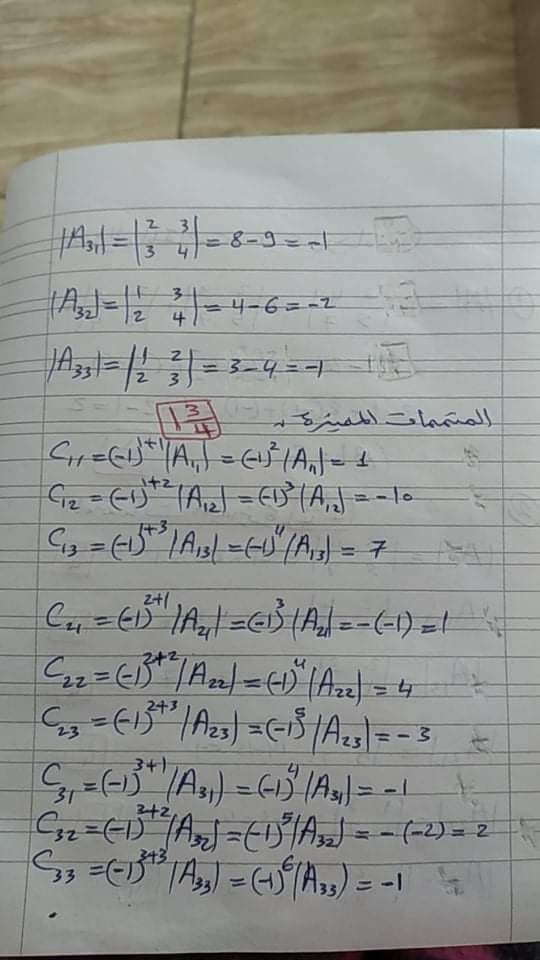 |A₃₁| = |2 3; 3 4| = 8 - 9 = -1
|A₃₂| = |1 3; 2 4| = 4 - 6 = -2
|A₃₃| = |1 2; 2 3| = 3 - 4 = -1
المتممات المميزة
1 3/4
C₁₁ = (-1)¹⁺¹ |A₁₁| = (-1)² |A₁₁| = 1
C₁₂ = (-1)¹⁺² |A₁₂| = (-1)³ |A₁₂| = -10
C₁₃ = (-1)¹⁺³ |A₁₃| = (-1)⁴ |A₁₃| = 7
C₂₁ = (-1)²⁺¹ |A₂₁| = (-1)³ |A₂₁| = -(-1) = 1
C₂₂ = (-1)²⁺² |A₂₂| = (-1)⁴ |A₂₂| = 4
C₂₃ = (-1)²⁺³ |A₂₃| = (-1)⁵ |A₂₃| = -3
C₃₁ = (-1)³⁺¹ |A₃₁| = (-1)⁴ |A₃₁| = -1
C₃₂ = (-1)³⁺² |A₃₂| = (-1)⁵ |A₃₂| = -(-2) = 2
C₃₃ = (-1)³⁺³ |A₃₃| = (-1)⁶ |A₃₃| = -1